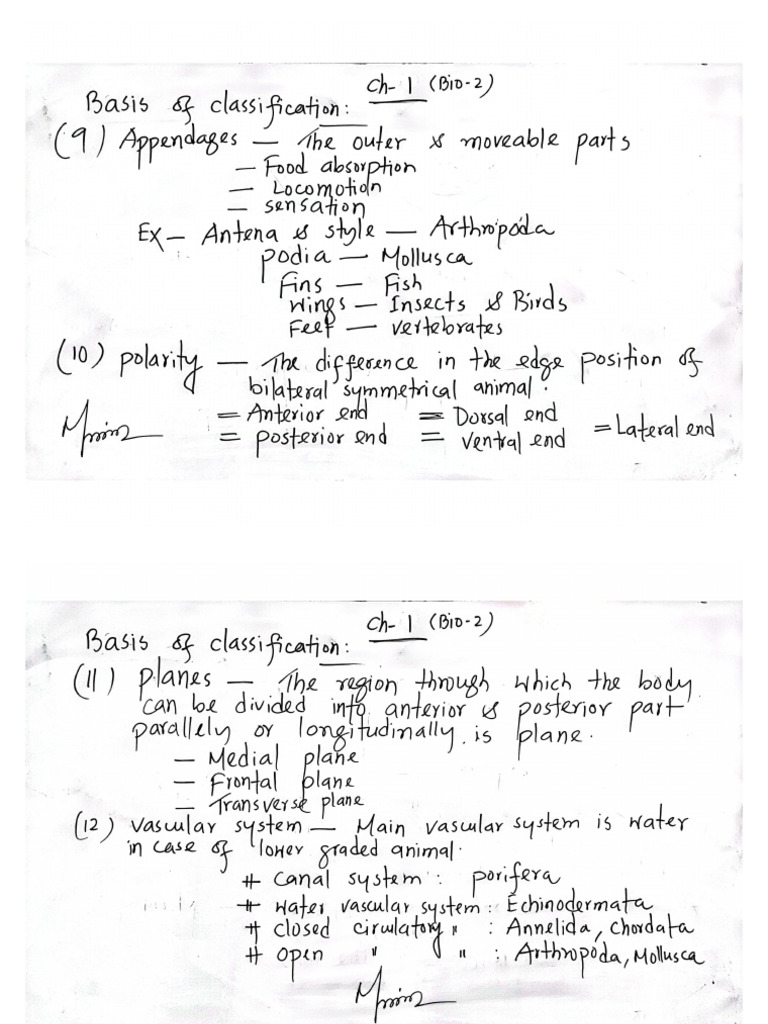 Ch- 1 (Bio-2)
Basis of classification:
(9) Appendages — The outer & moveable parts
— Food absorption
— Locomotion
— sensation
EX— Antena & style — Arthropoda
podia — Mollusca
Fins — Fish
Wings — Insects & Birds
Feet — vertebrates
(10) polarity — The difference in the edge position of
bilateral symmetrical animal.
= Anterior end = Dorsal end
= posterior end = ventral end = Lateral end
Ch- 1 (Bio-2)
Basis of classification:
(11) planes — The region through which the body
can be divided into anterior & posterior part
parallely or longitudinally is plane.
— Medial plane
— Frontal plane
— Transverse plane
(12) vascular system — Main vascular system is water
in case of lower graded animal.
# canal system : porifera
# water vascular system : Echinodermata
# closed cirulatory " : Annelida, chordata
# open " " : Arthropoda, Mollusca